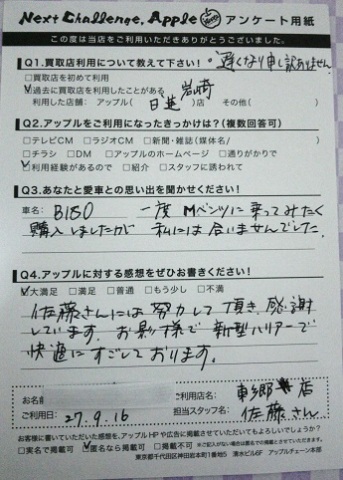 Next Challenge, Apple アンケート用紙
この度は当店をご利用いただきありがとうございました。
Q1.買取店利用について教えて下さい! 遅くなり申し訳ありません。
□買取店を初めて利用
☑過去に買取店を利用したことがある 岩崎
利用した店舗:アップル(日進)店 その他( )
Q2.アップルをご利用になったきっかけは?(複数回答可)
□テレビCM □ラジオCM □新聞・雑誌(媒体名/ )
□チラシ □DM □アップルのホームページ □通りがかりで
☑利用経験があるので □紹介 □スタッフに誘われて
Q3.あなたと愛車との思い出を聞かせください!
車名: B180 一度Mベンツに乗ってみたく
購入しましたが 私には合いませんでした。
Q4.アップルに対する感想をぜひお書きください!
☑大満足 □満足 □普通 □もう少し □不満
佐藤さんには努力して頂き、感謝
しています。お影様で新型ハリアーで
快適にすごしております。
お名前
ご利用店名: 東郷 店
ご利用日: 27.9.16
担当スタッフ名: 佐藤さん
お客様に書いていただいた感想を、アップルHPや広告に掲載させていただいてもよろしいでしょうか?
□実名で掲載可 ☑匿名なら掲載可 □掲載不可 ※ご記入がない場合は匿名での掲載とさせていただきます。
東京都千代田区神田岩本町1番地5 清水ビル6F アップルチェーン本部